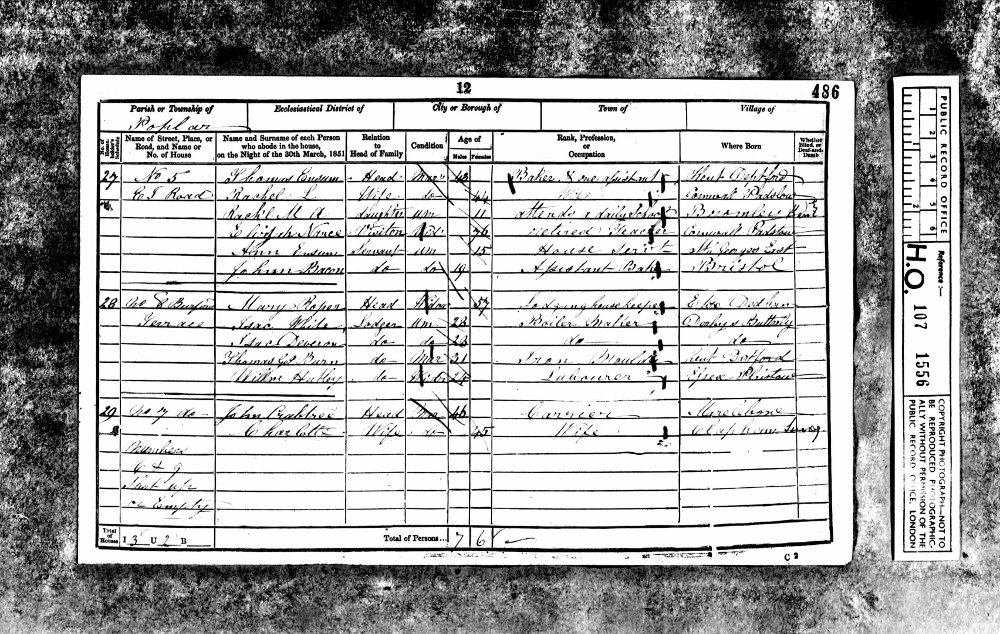 12
486
Parish or Township of Ecclesiastical District of City or Borough of Town of Village of
Poplar
No. of House Name of Street, Place, or Road, and Name or No. of House Name and Surname of each Person who abode in the house, on the Night of the 30th March, 1851 Relation to Head of Family Condition Age of Males Females Rank, Profession, or Occupation Where Born Whether Blind, or Deaf-and-Dumb
27 No 5 Thomas Ensum Head Mar 43 Baker & one assistant Kent Ashford
Road Rachel L Wife do 44 Cornwall Padstow
Rachl M A daughter um 11 attends a daily School Bromley
Elizth Nance Visitor 76 retired Teacher Cornwall Padstow
Ann Ensum Servant um 15 House Servt St Georges East
John Bacon do do 19 Assistant Baker Bristol
28 Mary Roper Head 57 Lodging house keeper Essex Dedham
Terrace Isac White Lodger um 28 Boiler Maker Derbys Butterly
Isac do do 23 do do
Thomas Burn do Mar 31 Iron Kent Dartford
Willm Hutley do 24 Labourer Essex Plaistow
29 No 7 do John Crabtree Head Mar 46 Carrier Marelibone
Charlotte Wife do 45 Wife Clapham Surrey
Numbers
& 9
Shut up
or Empty
Total of Houses 1 3 U 2 B Total of Persons... 7 6
C 2
PUBLIC RECORD OFFICE
1 2 3 4 5 6
Reference:-
H.O. 107 1556
COPYRIGHT PHOTOGRAPH-NOT TO
BE REPRODUCED PHOTOGRAPHIC-
ALLY WITHOUT PERMISSION OF THE
PUBLIC RECORD OFFICE, LONDON